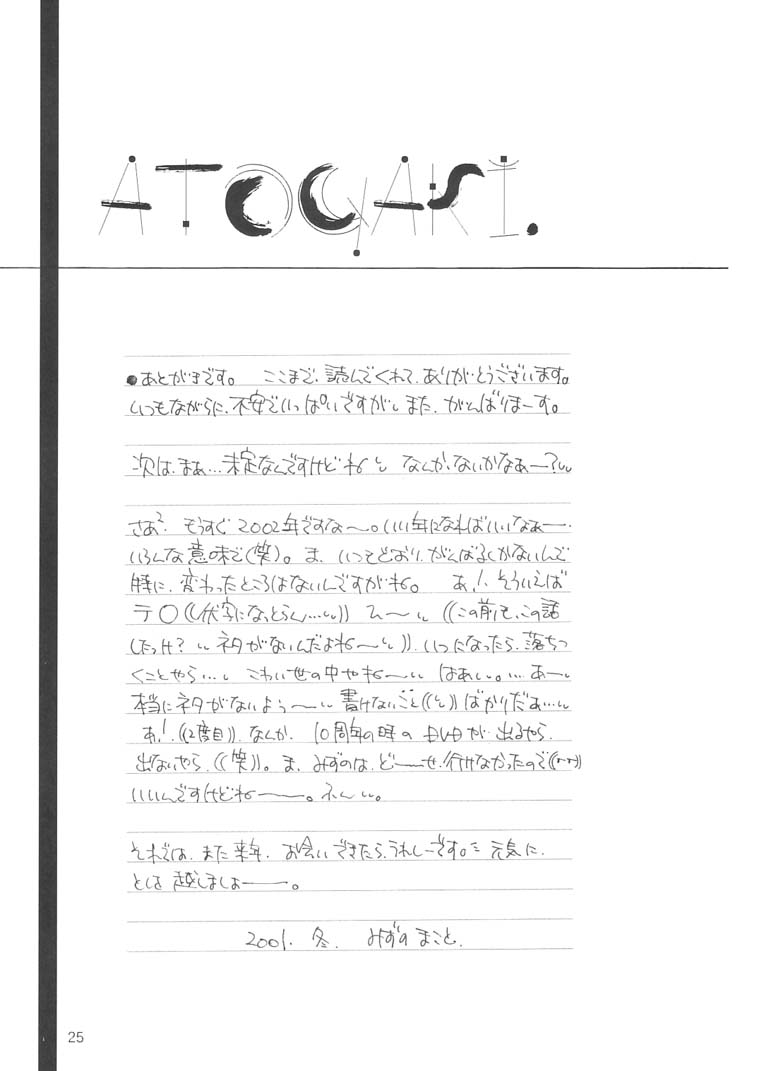 ATOGAKI.
●あとがきです。 ここまで、読んでくれて、ありがとうございます。
いつもながらに、不安でいっぱいですが、また、がんばりまーす。
次は、まぁ…未定なんですけどね なんか、ないかなぁー?
さあ²、もうすぐ2002年ですな〜。いい年になればいいなぁー、
いろんな意味で(笑)。ま、いつもどおり、がんばるしかないんで
特に、変わったところはないんですがね。 あ!、そういえば
テ○((伏字になっとらん…)) ひ〜 ((この前も、この話
したっけ? ネタがないんだよね〜))、いつになったら、落ちつ
くことやら… こわい世の中やね〜 はぁ。…あー
本当にネタがないよぅ〜 書けないこと(())ばかりだぁ…
あ!、((2度目))、なんか、10周年の時の が、出るやら、
出ないやら、((笑))。ま、みずのは、ど——せ、行けなかったので
いいんですけどねー——。ふん。
それでは、また来年、お会いできたら、うれしーです。 元気に、
とし越しましょー——。
2001. 冬. みずの まこと.
25